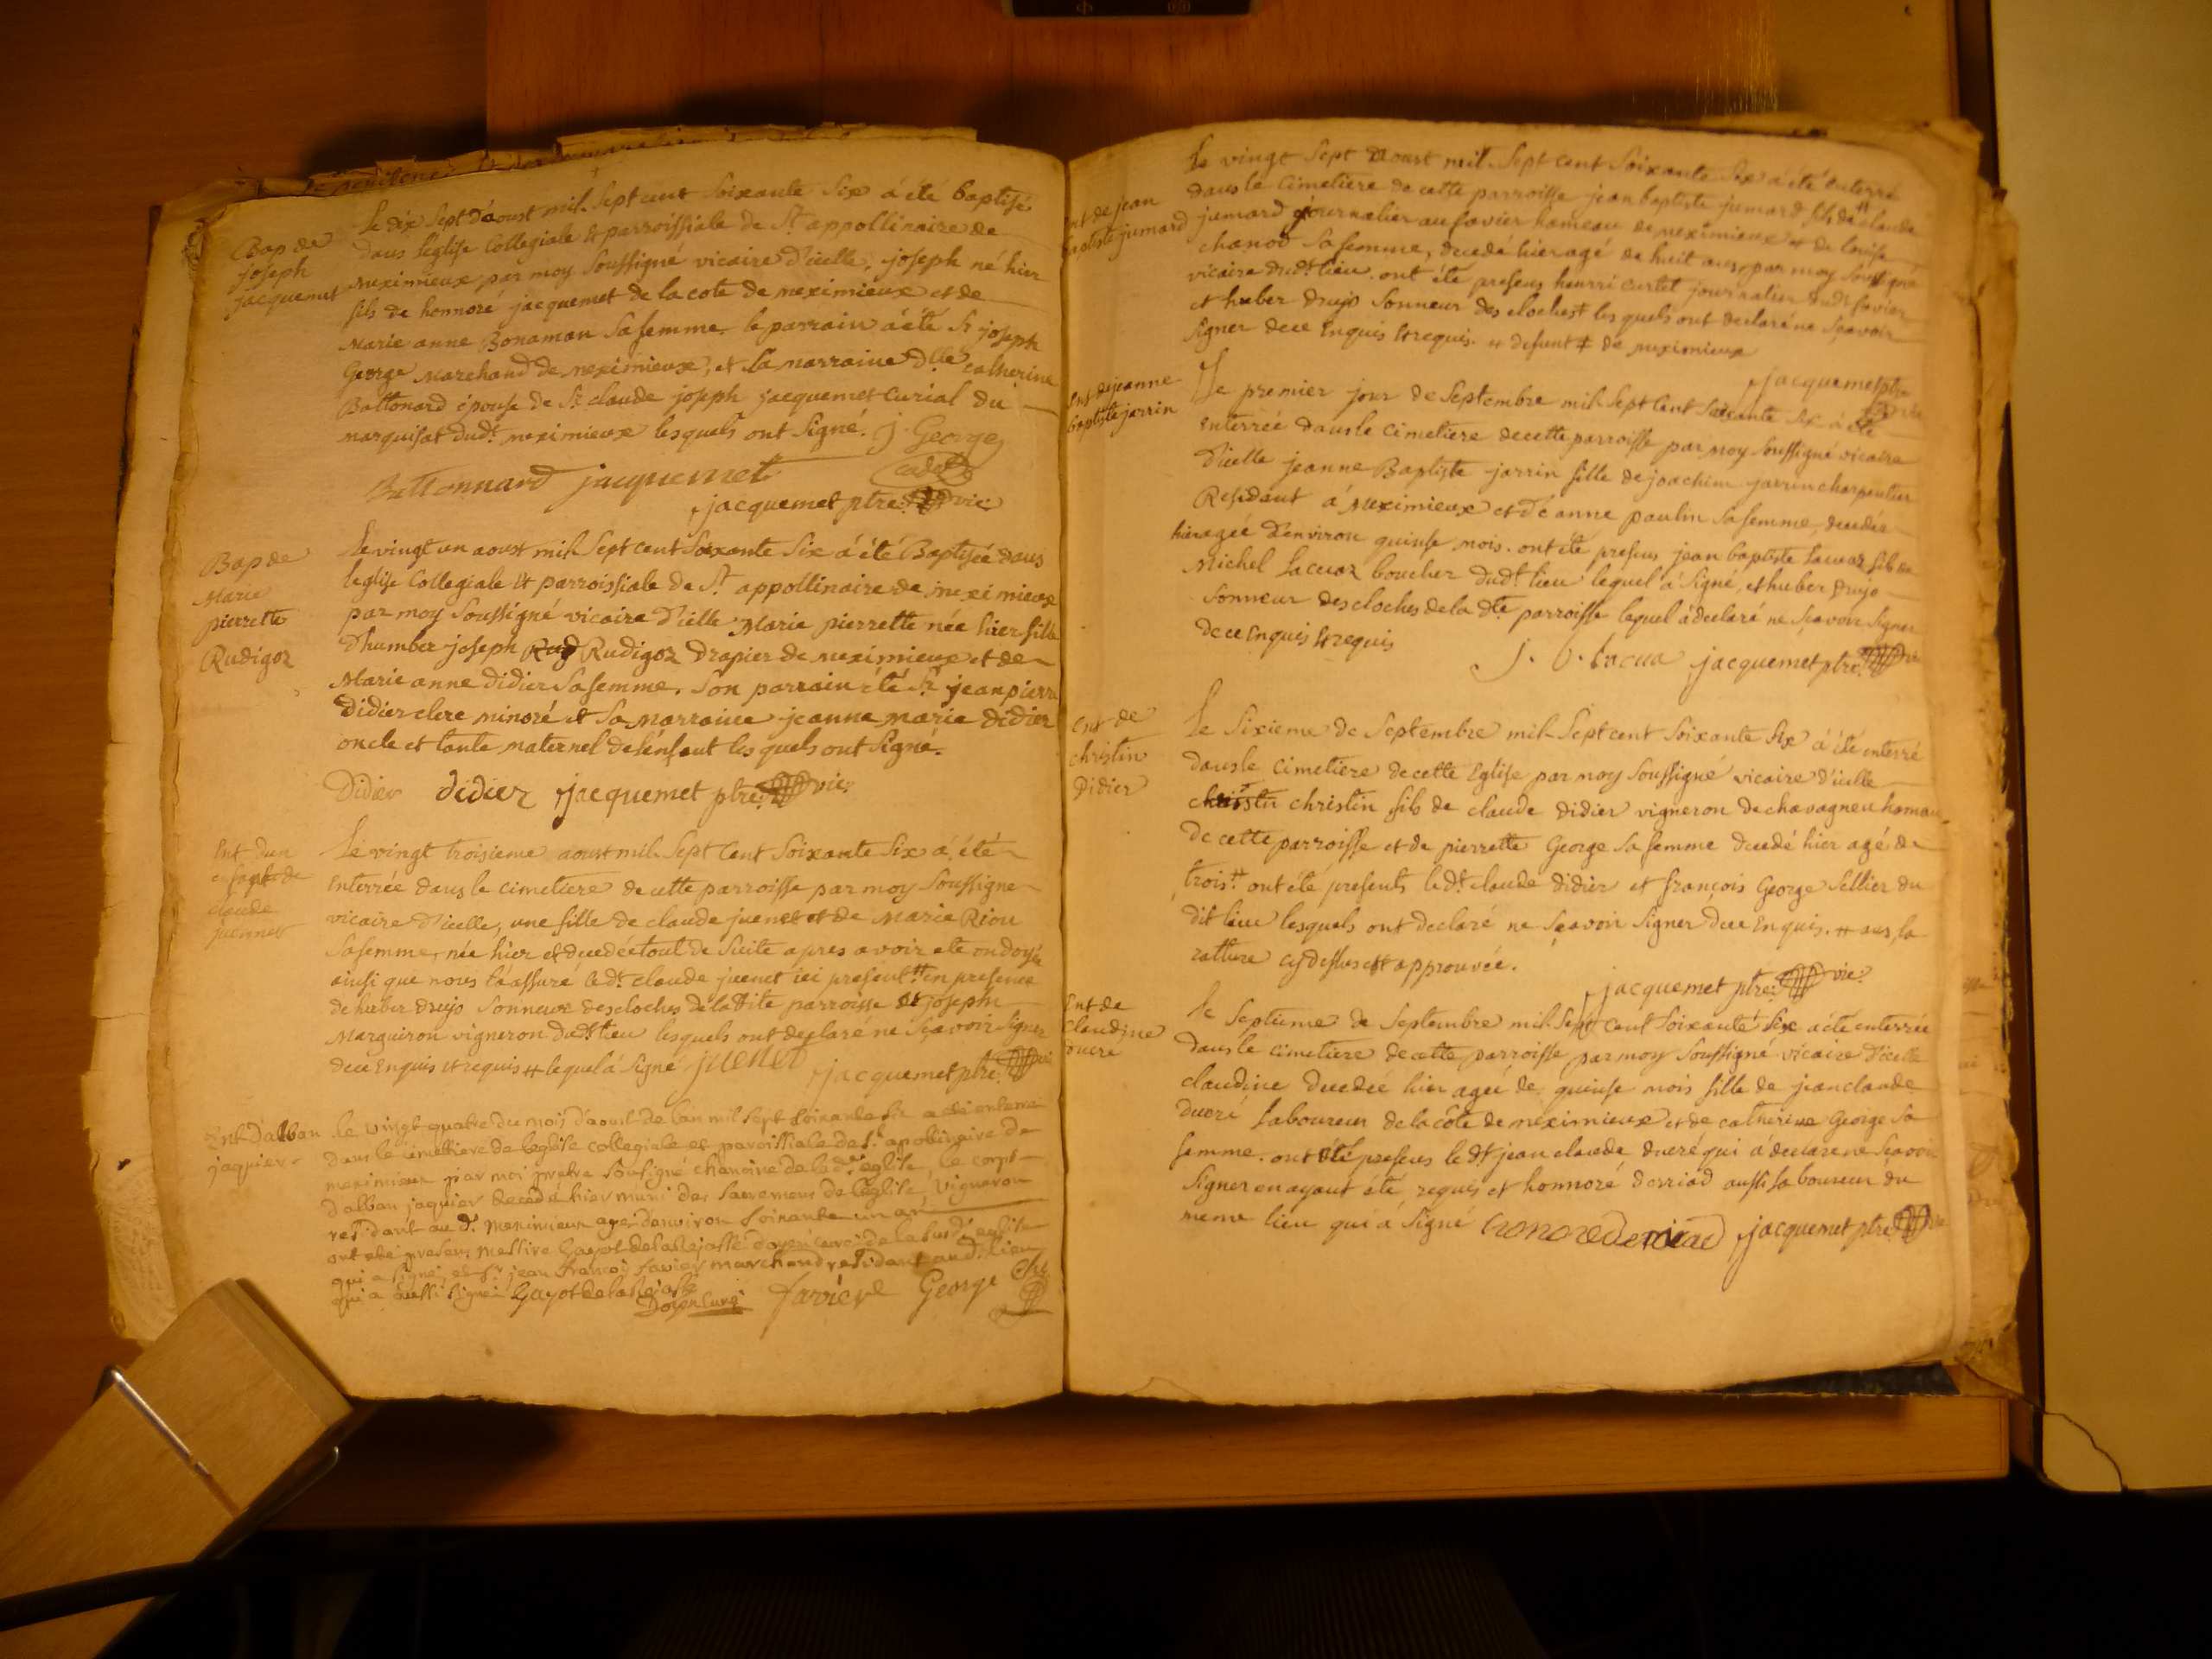 Bap de
joseph
jacquemet
Le dix Sept d'aoust mil Sept cent Soixante Six á été baptisé
dans l'eglise Collegiale et parroissiale de St. appollinaire de
meximieux par moy Soussigné vicaire d'icelle, joseph né hier
fils de honnoré jacquemet de la cote de meximieux et de
Marie anne Bonaman Sa femme. le parrain á été Sr. joseph
George Marchand de meximieux, et la marraine Dlle catherine
Battonard épouse de Sr. claude joseph jacquemet curial du
marquisat dudt. meximieux lesquels ont Signé. j. George
Battonnard jacquemet cadet
jacquemet ptre. vic
Bap de
Marie
pierrette
Rudigoz
Le vingt un aoust mil Sept cent Soixante Six á été Baptisée dans
l'eglise Collegiale et parroissiale de St. appollinaire de meximieux
par moy Soussigné vicaire d'icelle Marie pierrette née hier fille
d'humber joseph Rud Rudigoz drapier de meximieux et de
Marie anne didier Sa femme. Son parrain été Sr. jean pierre
didier clerc minoré et Sa marraine jeanne marie didier
oncle et tante maternel de l'enfant lesquels ont Signé.
Didier didier jacquemet ptre. vic:
Ent d'un
enfant de
claude
juennet
Le vingt troisieme aoust mil Sept Cent Soixante Six á été
Enterrée dans le cimetiere de cette parroisse par moy Soussigné
vicaire d'icelle, une fille de claude juenet et de Marie Riou
Sa femme, née hier et decedée tout de Suite apres avoir eté ondoyée
ainsi que nous l'a assuré ledt. claude juenet ici present # en presence
de huber drujo Sonneur des cloches de la dite parroisse et joseph
Marguiron vigneron dudt lieu lesquels ont declaré ne Sçavoir Signer
de ce Enquis et requis # lequel á Signé juenet jacquemet ptre. vic
Ent d'alban
jaquier
le vingt quatre du mois d'aoust de l'an mil sept Soixante six a été enterré
dans le cimettiere de l'eglise collegiale et paroissiale de St. apolinaire de
meximieux par moi pretre Sousigné chanoine de la dte eglise, le corps
d'alban jaquier decedé hier muni des Sacremens de l'eglise, Vigneron
residant au dt. meximieux agé d'environ Soixante un an
ont eté presens messire Gayot de la Rejasse doyen curé de la susd. eglise
qui a signé, et Sr jean françois favier marchand residant au dt. lieu
qui a aussi signé Gayot de la Rejasse
Doyen Curé favier George Che
Ent de jean
baptiste jumard
Le vingt Sept aoust mil Sept cent Soixante Six á été enterré
dans le Cimetiere de cette parroisse jean baptiste jumard fils de # claude
jumard journalier au favier hameau de meximieux et de louise
chanod Sa femme, decedé hier agé de huit ans, par moy Soussigné
vicaire dudt. lieu. ont été presens henri curtet journalier dudt favier
et huber drujo Sonneur des cloches ‡ lesquels ont declaré ne Sçavoir
Signer de ce Enquis et requis. # defunt ‡ de meximieux
jacquemet ptre
Ent de jeanne
baptiste jarrin
Le premier jour de Septembre mil Sept Cent Soixante Six á été
Enterrée dans le cimetiere de cette parroisse par moy Soussigné vicaire
d'icelle jeanne Baptiste jarrin fille de joachim jarrin charpentier
Residant á Meximieux et d'é anne paulin Sa femme, decedée
hier agée d'environ quinse mois. ont été presens jean baptiste Lacuaz fils de
Michel Lacuaz boucher dudt. lieu lequel á Signé, et huber drujo
Sonneur des cloches de la dte parroisse lequel á declaré ne Sçavoir Signer
de ce Enquis et requis
J. B. lacua jacquemet ptre. vic
Ent de
christin
didier
Le Sixieme de Septembre mil Sept cent Soixante Six á été enterré
dans le cimetiere de cette Eglise par moy Soussigné vicaire d'icelle
christin fils de claude didier vigneron de chavagneu hameau
de cette parroisse et de pierrette George Sa femme decedé hier agé de
trois # ont été presents ledt. claude didier et françois George Sellier du
dit lieu lesquels ont declaré ne Sçavoir Signer de ce Enquis. # ans, la
rature cy dessus est approuvée.
jacquemet ptre. vic.
Ent de
claudine
ducré
Le Septieme de Septembre mil Sept Cent Soixante Six á été enterrée
dans le cimetiere de cette parroisse par moy Soussigné vicaire d'icelle
claudine decedée hier agée de quinse mois fille de jean claude
ducré Laboureur de la côte de meximieux et de catherine George Sa
femme. ont été presens le dt jean claude ducré qui á declaré ne Sçavoir
Signer en ayant été requis et honnoré derriad aussi laboureur du
meme lieu qui á Signé honoré derriad jacquemet ptre vic